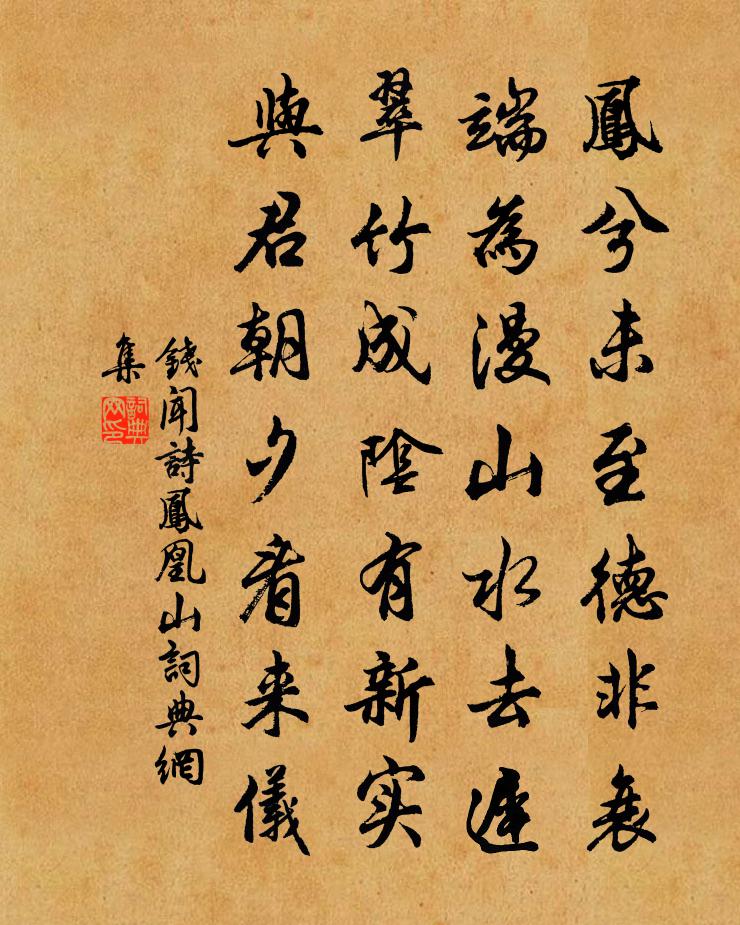 鳳兮未至德非衰
端為漫山水去遲
翠竹成陰有新实
與君朝夕看来儀
錢聞詩鳳凰山詞典網
集
詞典网印